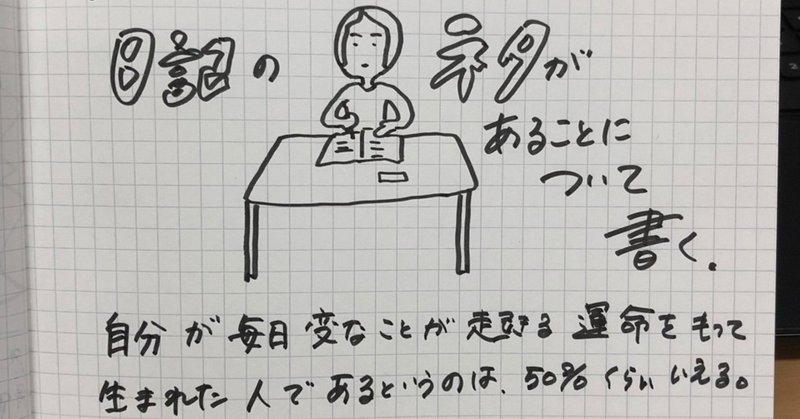 日記の ネタが
あることに
ついて
書く。
自分が毎日変なことが起きる運命をもって
生まれた人であるというのは、50%くらいいえる。